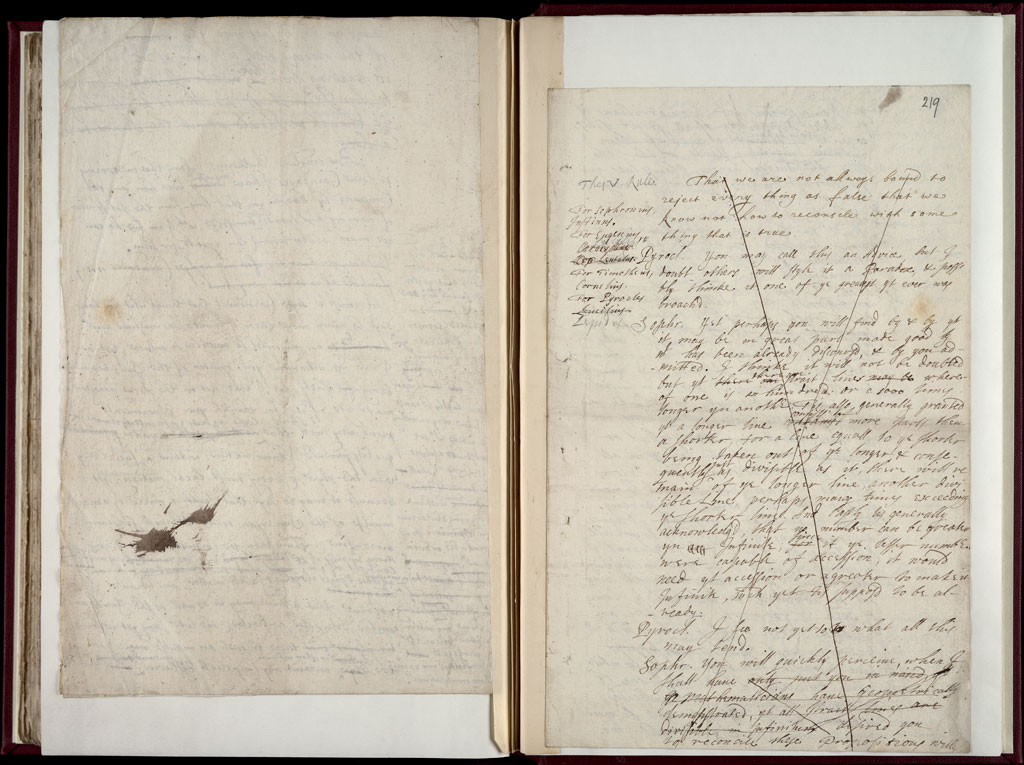 219
The V Rule
That we are not allways bound to
reject every thing as false that we
know not how to reconcile with some
thing that is true
For Sophronius,
Junianus.
For Eugenius,
For Timotheus,
Cornelius.
For Pyrocles
Lucilius
Pyrocl. You may call this an advice, but I
doubt others will style it a Paradox, & possi
bly thinke it one of ye greatest yt ever was
broach'd.
Sophr. Yet perhaps you will find by & by yt
it may be in great part made good by
wt has been already discours'd, & by you ad
-mitted. I thinke it will not be doubted
but yt there are streit lines may be where-
of one is a hundred or a 1000 times
longer yn another. Tis also generally granted
yt a longer line more parts then
a shorter, for a line equall to ye shorter
being taken out of ye longer & conse-
quently just as divisible as it, there will re
main of ye longer line another divi
sible Line, perhaps many times exceeding
ye shorter line. And lastly tis generally
acknowledg'd that no number can be greater
yn Infinite, since if ye lesser number
were capable of accession, it would
need yt accession or a greater to make it
Infinite, wch yet tis suppos'd to be al-
-ready.
Pyrocl. I see not yet to what all this
may tend.
Sophr. You will quickly perceive, when I
shall have only put you in mind, yt
ye Mathematicians have Geometrically
demonstrated, yt all strait lines are
divisible in Infinitum desired you
to reconcile these Propositions with